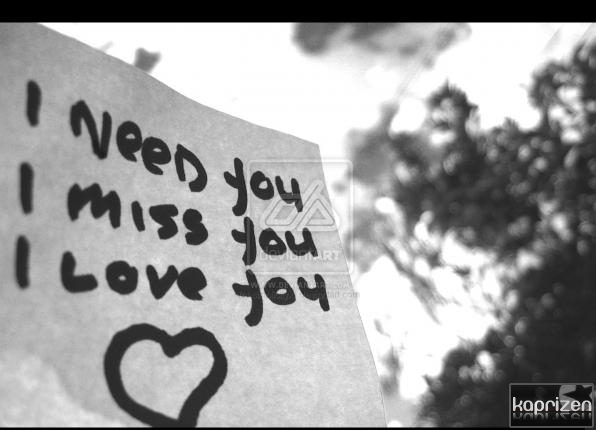 I NEED you
I miss you
I Love you
deviantART
kaprizen